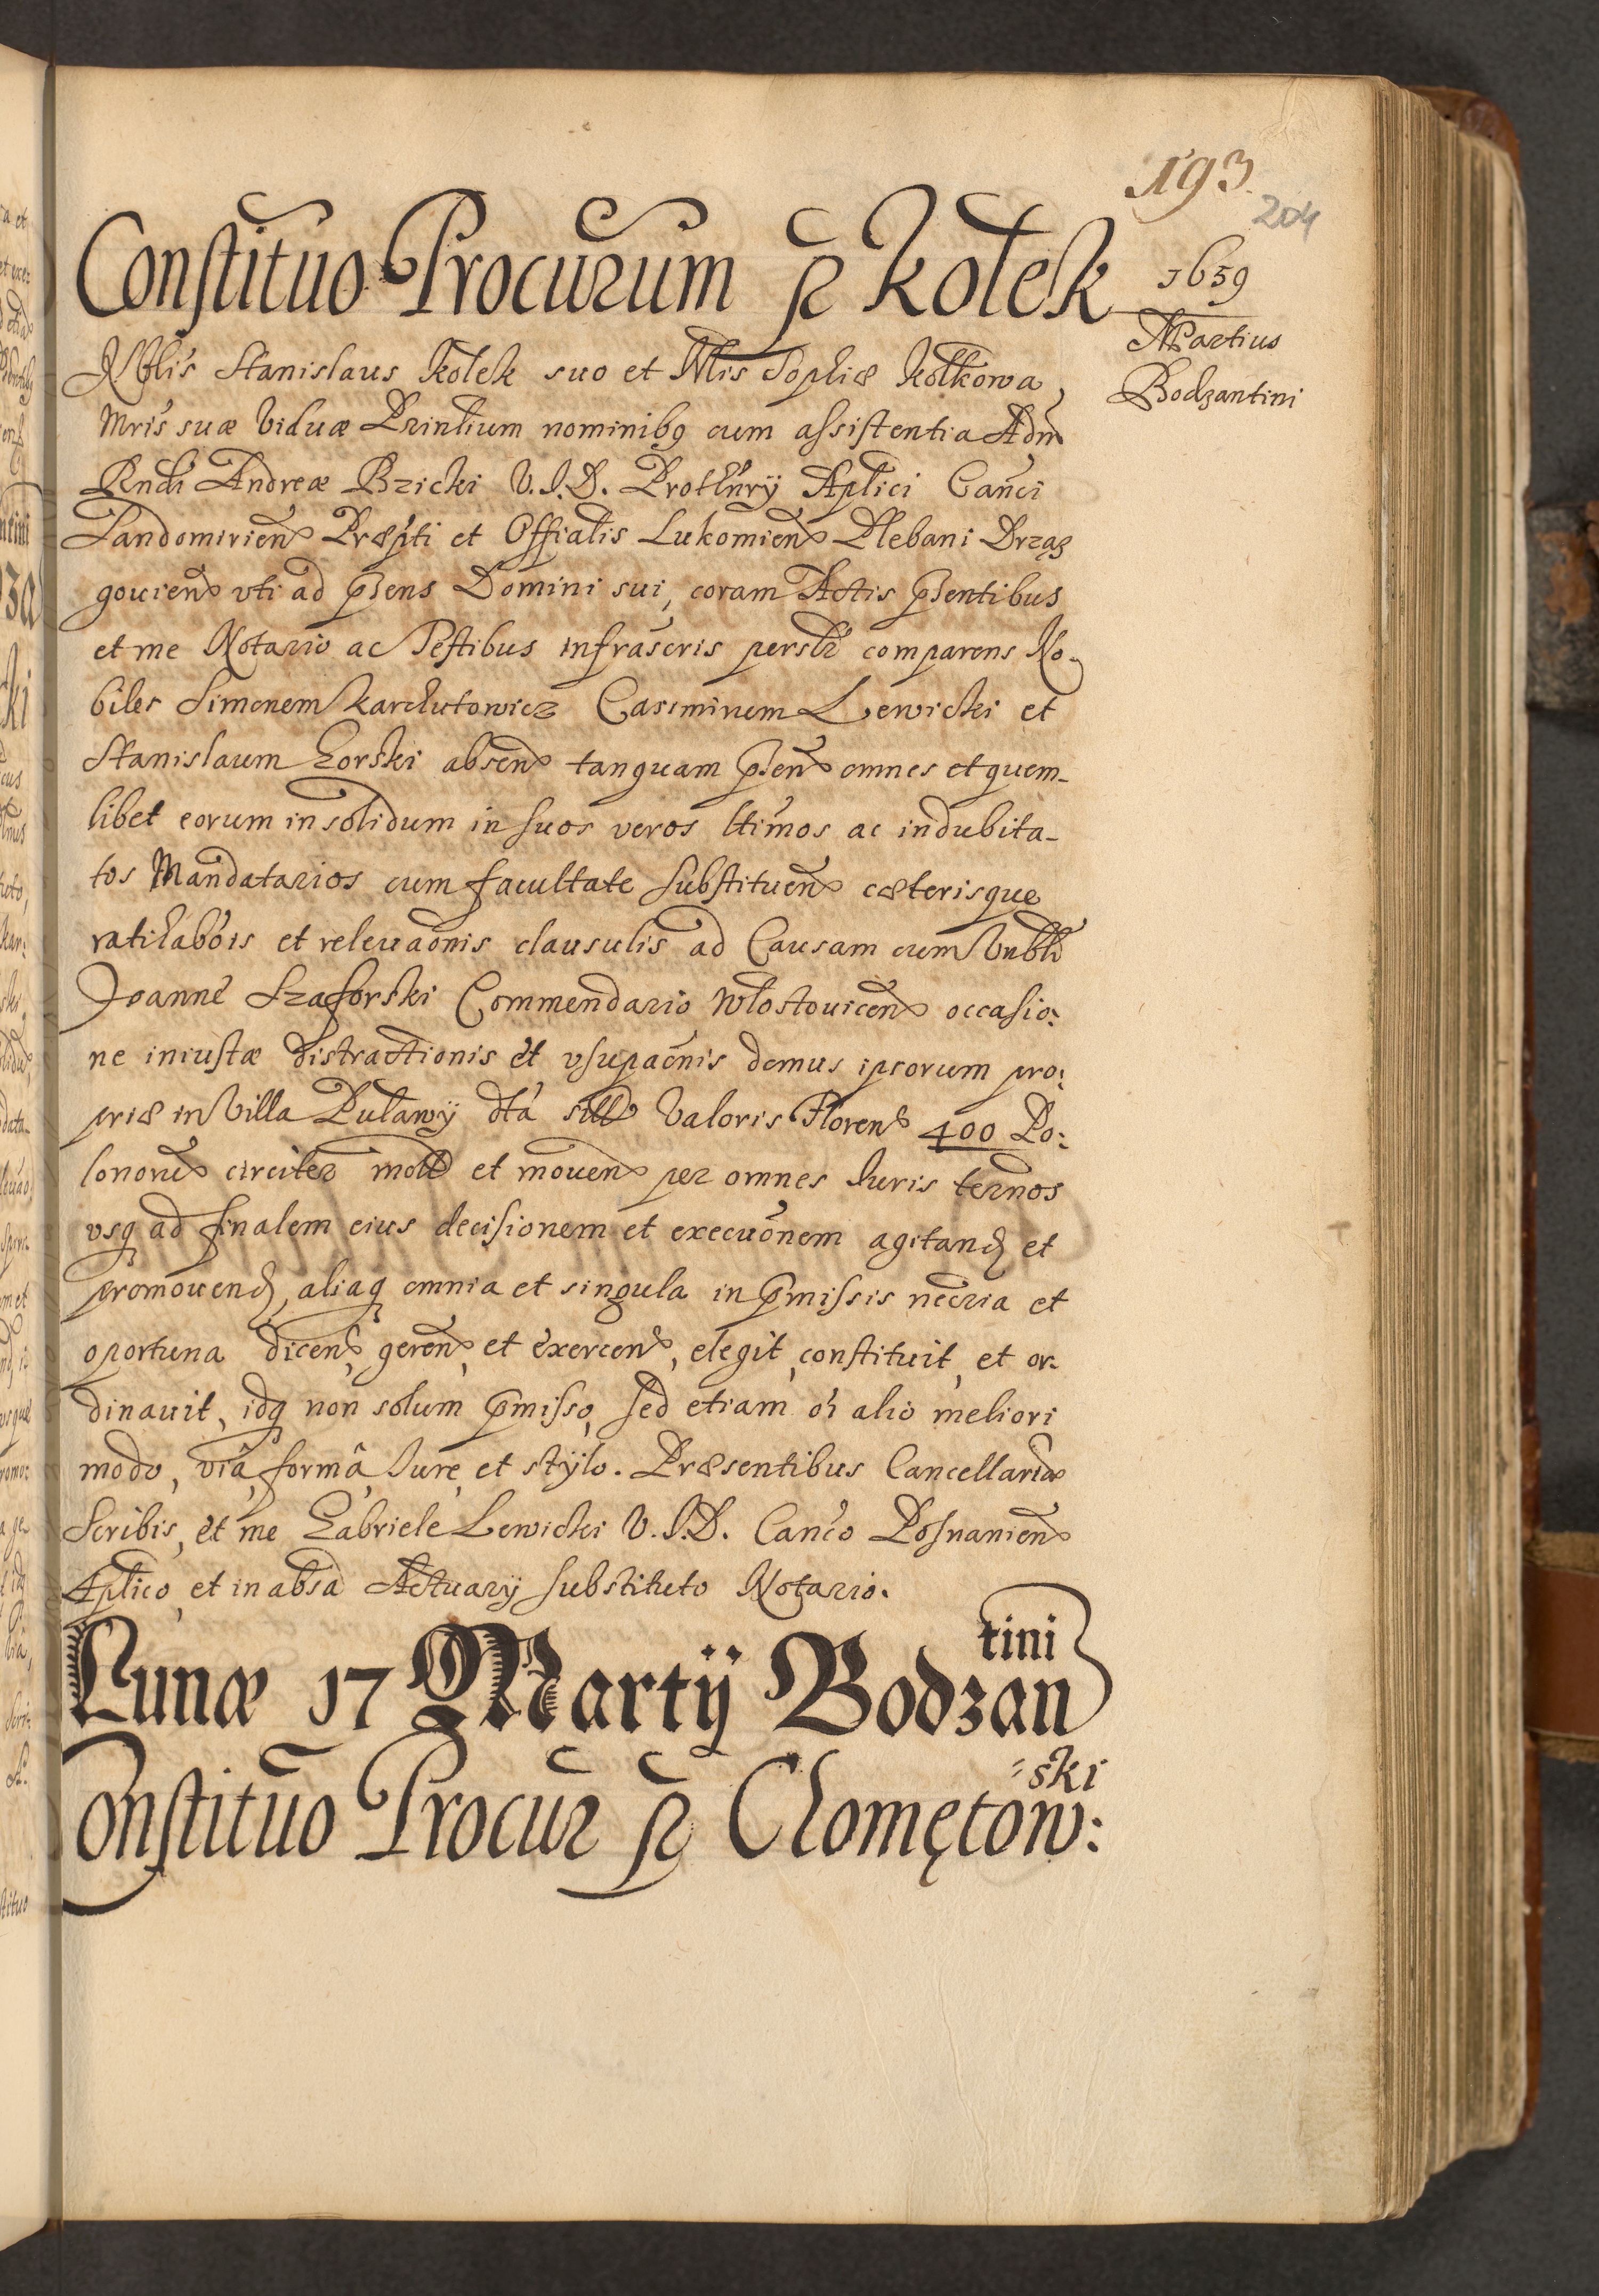 193
204
1659
Martius
Bodzantini
Constituo Procurum p Kołek
Nblis Stanislaus Kołek suo et Hlis Sophiæ Kołkowa
Mris suæ Viduæ Printium nominibq cum assistentia Adm
Rndi Andreæ Bzicki V.I.D. Prothnry Aplici Canci
Sandomirien Præpti et Offialis Lukowien Plebani Drząz
gouien vti ad pśens Domini sui, coram Actis pśentibus
et me Notario ac Testibus infrascris perslr comparens No-
biles Simonem Karchutowicz Casiminum Lewicki et
Stanislaum Gorski absen tanquam pśen omnes et quem-
libet eorum in solidum in suos veros ltimos ac indubita-
tos Mandatarios cum facultate substituen cæterisque
ratihabois et releuaonis clausulis ad Causam cum Vnbli
Joanne Szaforski Commendario Włostouicen occasio:
ne iniustæ distractionis et vsupaonis domus ipsorum pro:
priæ in Villa Puławÿ dta sitt Valoris Floren 400 Po:
lonorū circiter mott et mouen per omnes Iuris termos
vsq ad finalem eius decisionem et execuonem agitand et
promouend, aliaq omnia et singula in pmissis necria et
oportuna dicen, geren, et exercen, elegit, constituit, et or-
dinauit, idq non solum pmisso, sed etiam oi alio meliori
modo, viâ, formâ, Iure, et stÿlo. Præsentibus Cancellariæ
Scribis, et me Gabriele Lewicki V.I.D. Canco Posnanien
Aplico, et in absa Actuarÿ substituto Notario.
Lunæ 17 Martij Bodzan
tini
Constituo Procur p Chomętow:
ski